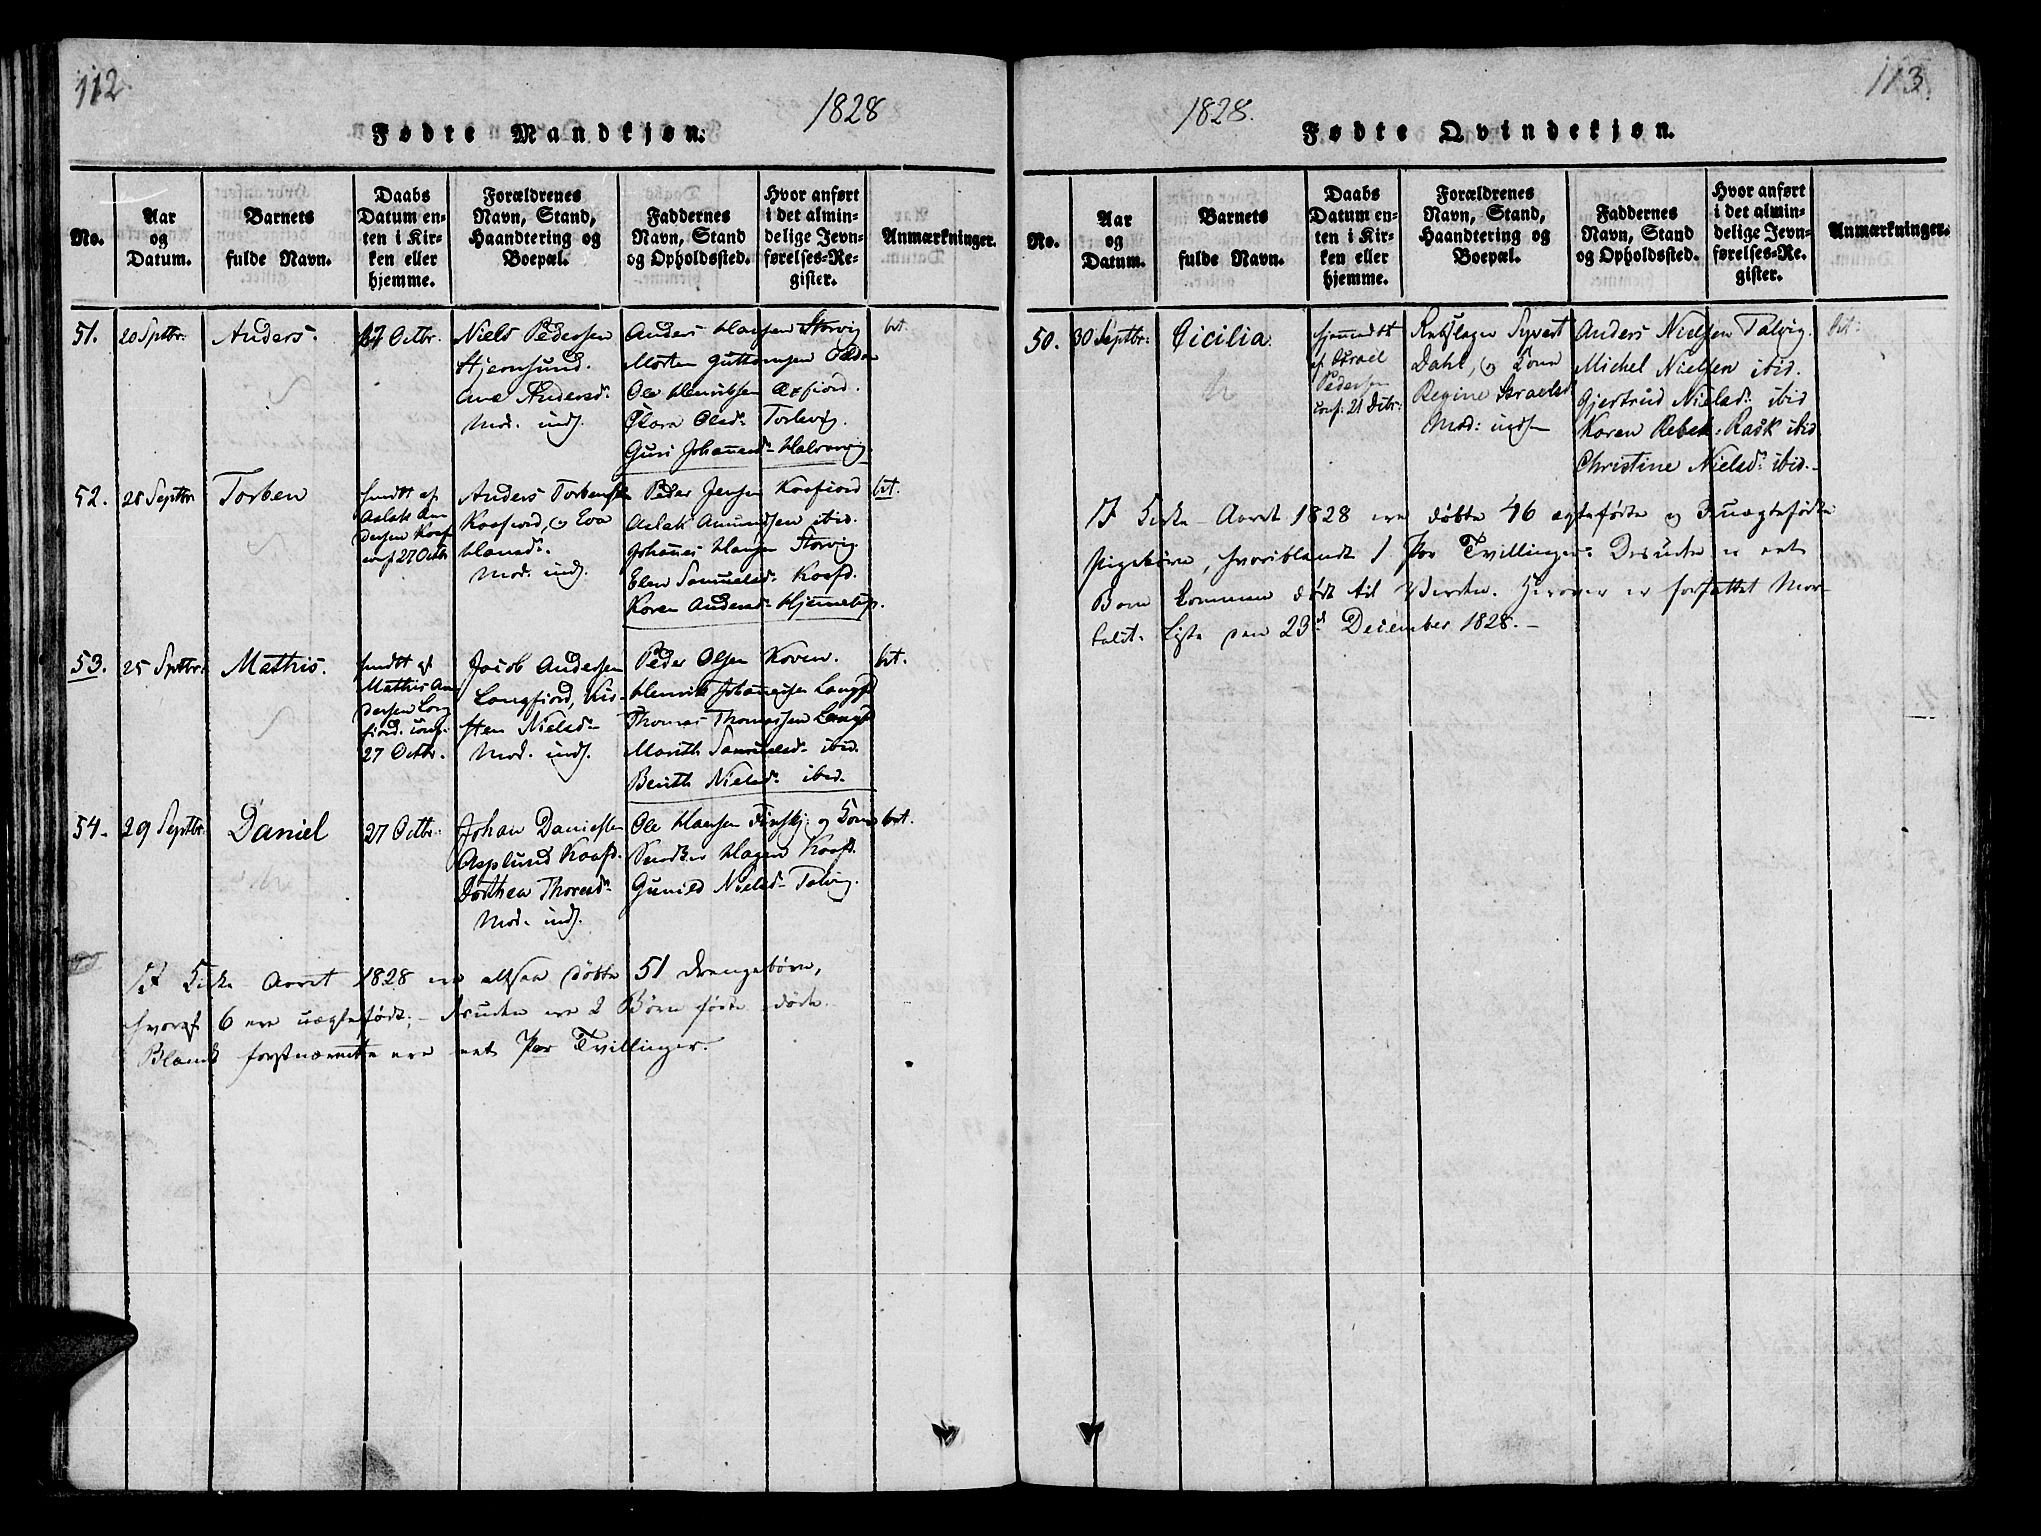 112.
1828
Fødte Mandkjøn.
No.
Aar
og
Datum.
Barnets
fulde Navn.
Daabs
Datum en-
ten i Kir-
ken eller
hjemme.
Forældrenes
Navn, Stand,
Haandtering og
Boepæl.
Faddernes
Navn, Stand
og Opholdssted.
Hvor anført
i det almin-
delige Jevn-
førelses-Re-
gister.
Anmærkninger.
51.
20 Septbr:
Anders.
27 Octbr.
Niels Pedersen
Hjernsund.
Ane Andersd:
Mod. inds.
Anders Hansen Storvig
Morten Guttormsen
Ole Henriksen Oxfiord.
Olsd: Torkevig.
Guri Johannesd:
bet.
52.
28 Septbr
Torben
hiemdt af
Aslak An
dersen Kaaf
conf 27 Octbr
Anders Torbensen
Kaafiord, og Eva
Hansd:
Mod. inds.
Peder Jensen Kaafiord
Aslak Amundsen ibid.
Johannes Hansen Storvig
Elen Samuelsd: Kaafd.
Karen Andersd:
bet.
53.
25 Septbr.
Mathis.
hiemdt af
Mathis An
dersen Lang
fiord. conf.
27 Octbr.
Jacob Andersen
Langfiord, Kir-
sten Nielsd:
Mod. inds.
Peder Olsen Koven.
Henrik Johannesen Langfd
Thomas Thomassen Langf
Marith Samuelsd: ibid.
Berith Nielsd: ibid.
bet.
54.
29 Septbr:
Daniel
27 Octbr:
Johan Danielsen
Asplund Kaafd.
Dorthea Thoresd:
Mod. inds.
Ole Hansen og Kone
Snedker Hagen Kaafd.
Gunild Nielsd: Talvig.
bet.
I Kirke Aaret 1828 ere altsaa døbte 51 Drengebørn,
hvoraf 6 ere uægtefødt; desuden ere 2 Børn fødte døde.
Blandt førstnævnte ere eet Par Tvillinger.
113.
1828.
Fødte Qvindekjøn.
No.
Aar
og
Datum.
Barnets
fulde Navn.
Daabs
Datum en-
ten i Kir-
ken eller
hjemme.
Forældrenes
Navn, Stand,
Haandtering og
Boepæl.
Faddernes
Navn, Stand
og Opholdssted.
Hvor anført
i det almin-
delige Jevn-
førelses-Re-
gister.
Anmærkninger.
50.
30 Septbr:
Cicilia.
hjemmedt
af Israel
Pedersen
conf. 21 Dcbr:
Rebslager Syvert
Dahl, og Kone
Regine Israelsd
Mod: inds
Anders Nielsen Talvig.
Michel Nielsen ibid.
Gjertrud Nielsd: ibid
Karen Rebek: Rask ibid
Christine Nielsd: ibid.
bet:
I Kirke-Aaret 1828 ere døbte 46 ægtefødte og 3 uægtefødte
Pigebørn, hvoriblandt 1 Par Tvillinger. Desuden er eet
Barn kommen dødt til Verden. Herover er forfattet Mor-
talit. Liste den 23d December 1828.